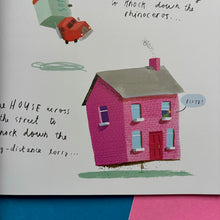 to knock down the
rhinoceros...
HOUSE across
the street to
knock down the
-distance lorry...